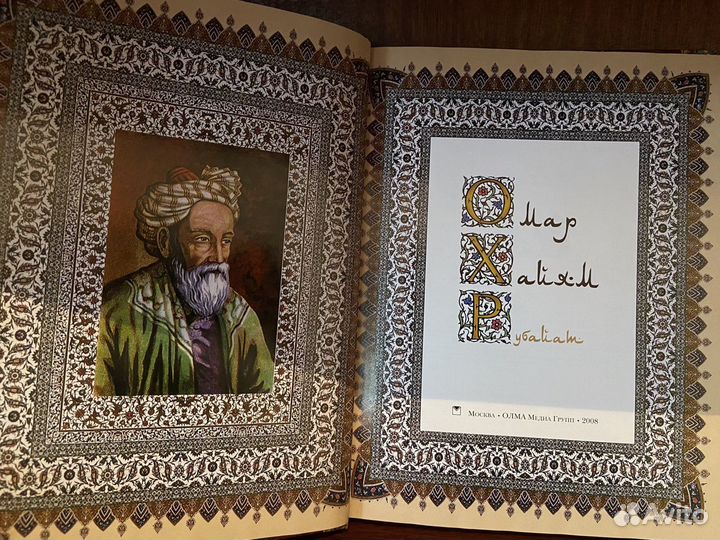 Омар
Хайям
Рубайат
Москва • ОЛМА Медиа Групп • 2008
Avito